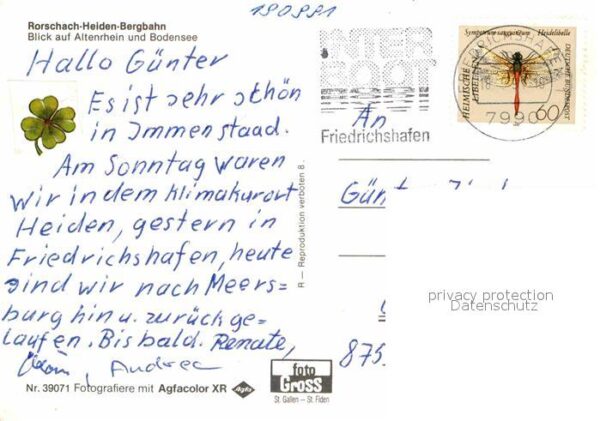 190991
Rorschach-Heiden-Bergbahn
Blick auf Altenrhein und Bodensee
Hallo Günter
Es ist sehr schön
in Immenstaad.
Am Sonntag waren
wir in dem Klimakurort
Heiden, gestern in
Friedrichshafen, heute
sind wir nach Meers=
burg hin u. zurück ge=
laufen. Bis bald. Renate,
, Andrea
Nr. 39071 Fotografiere mit Agfacolor XR Agfa
foto
Gross
St. Gallen – St. Fiden
R — Reproduktion verboten 8.
INTER
BOOT
Friedrichshafen
Sympetrum sanguineum Heidelibelle
HEIMISCHE
LIBELLEN
DEUTSCHE BUNDESPOST
60
FRIEDRICHSHAFEN
7990
An
privacy protection
Datenschutz